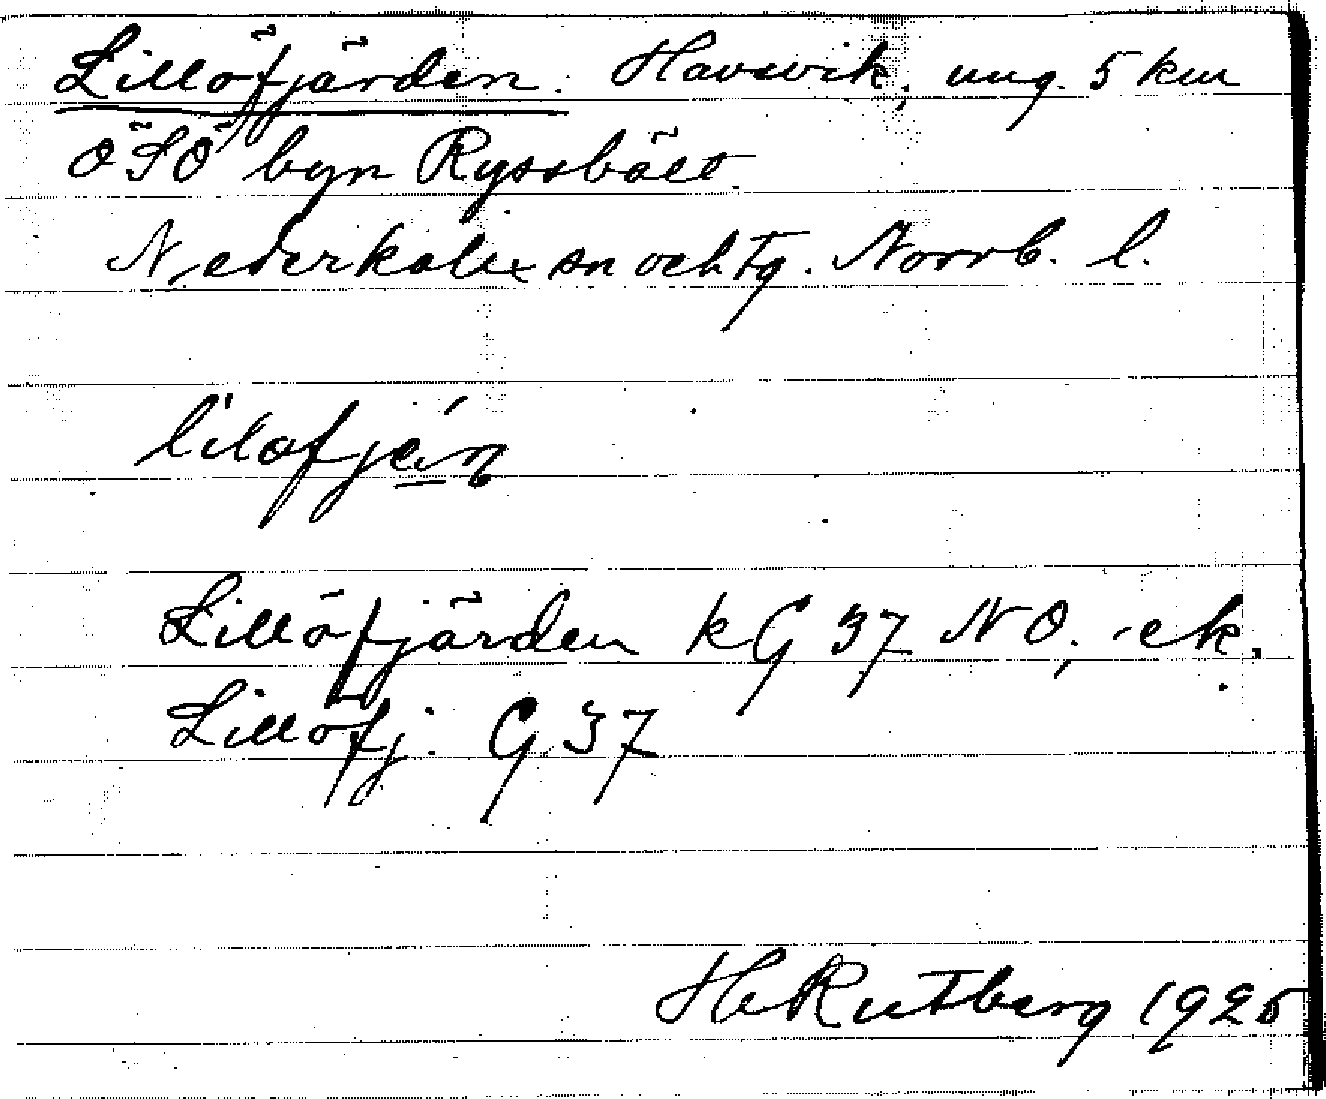 Lillöfjärden. Havsvik, ung. 5 km
ÖSÖ byn Ryssbält.
Nederkalix sn och tg. Norrb. l.
Lillöfjärden kG 37 NO, ek.
Lillöfj. G 37
H Rutberg 1925